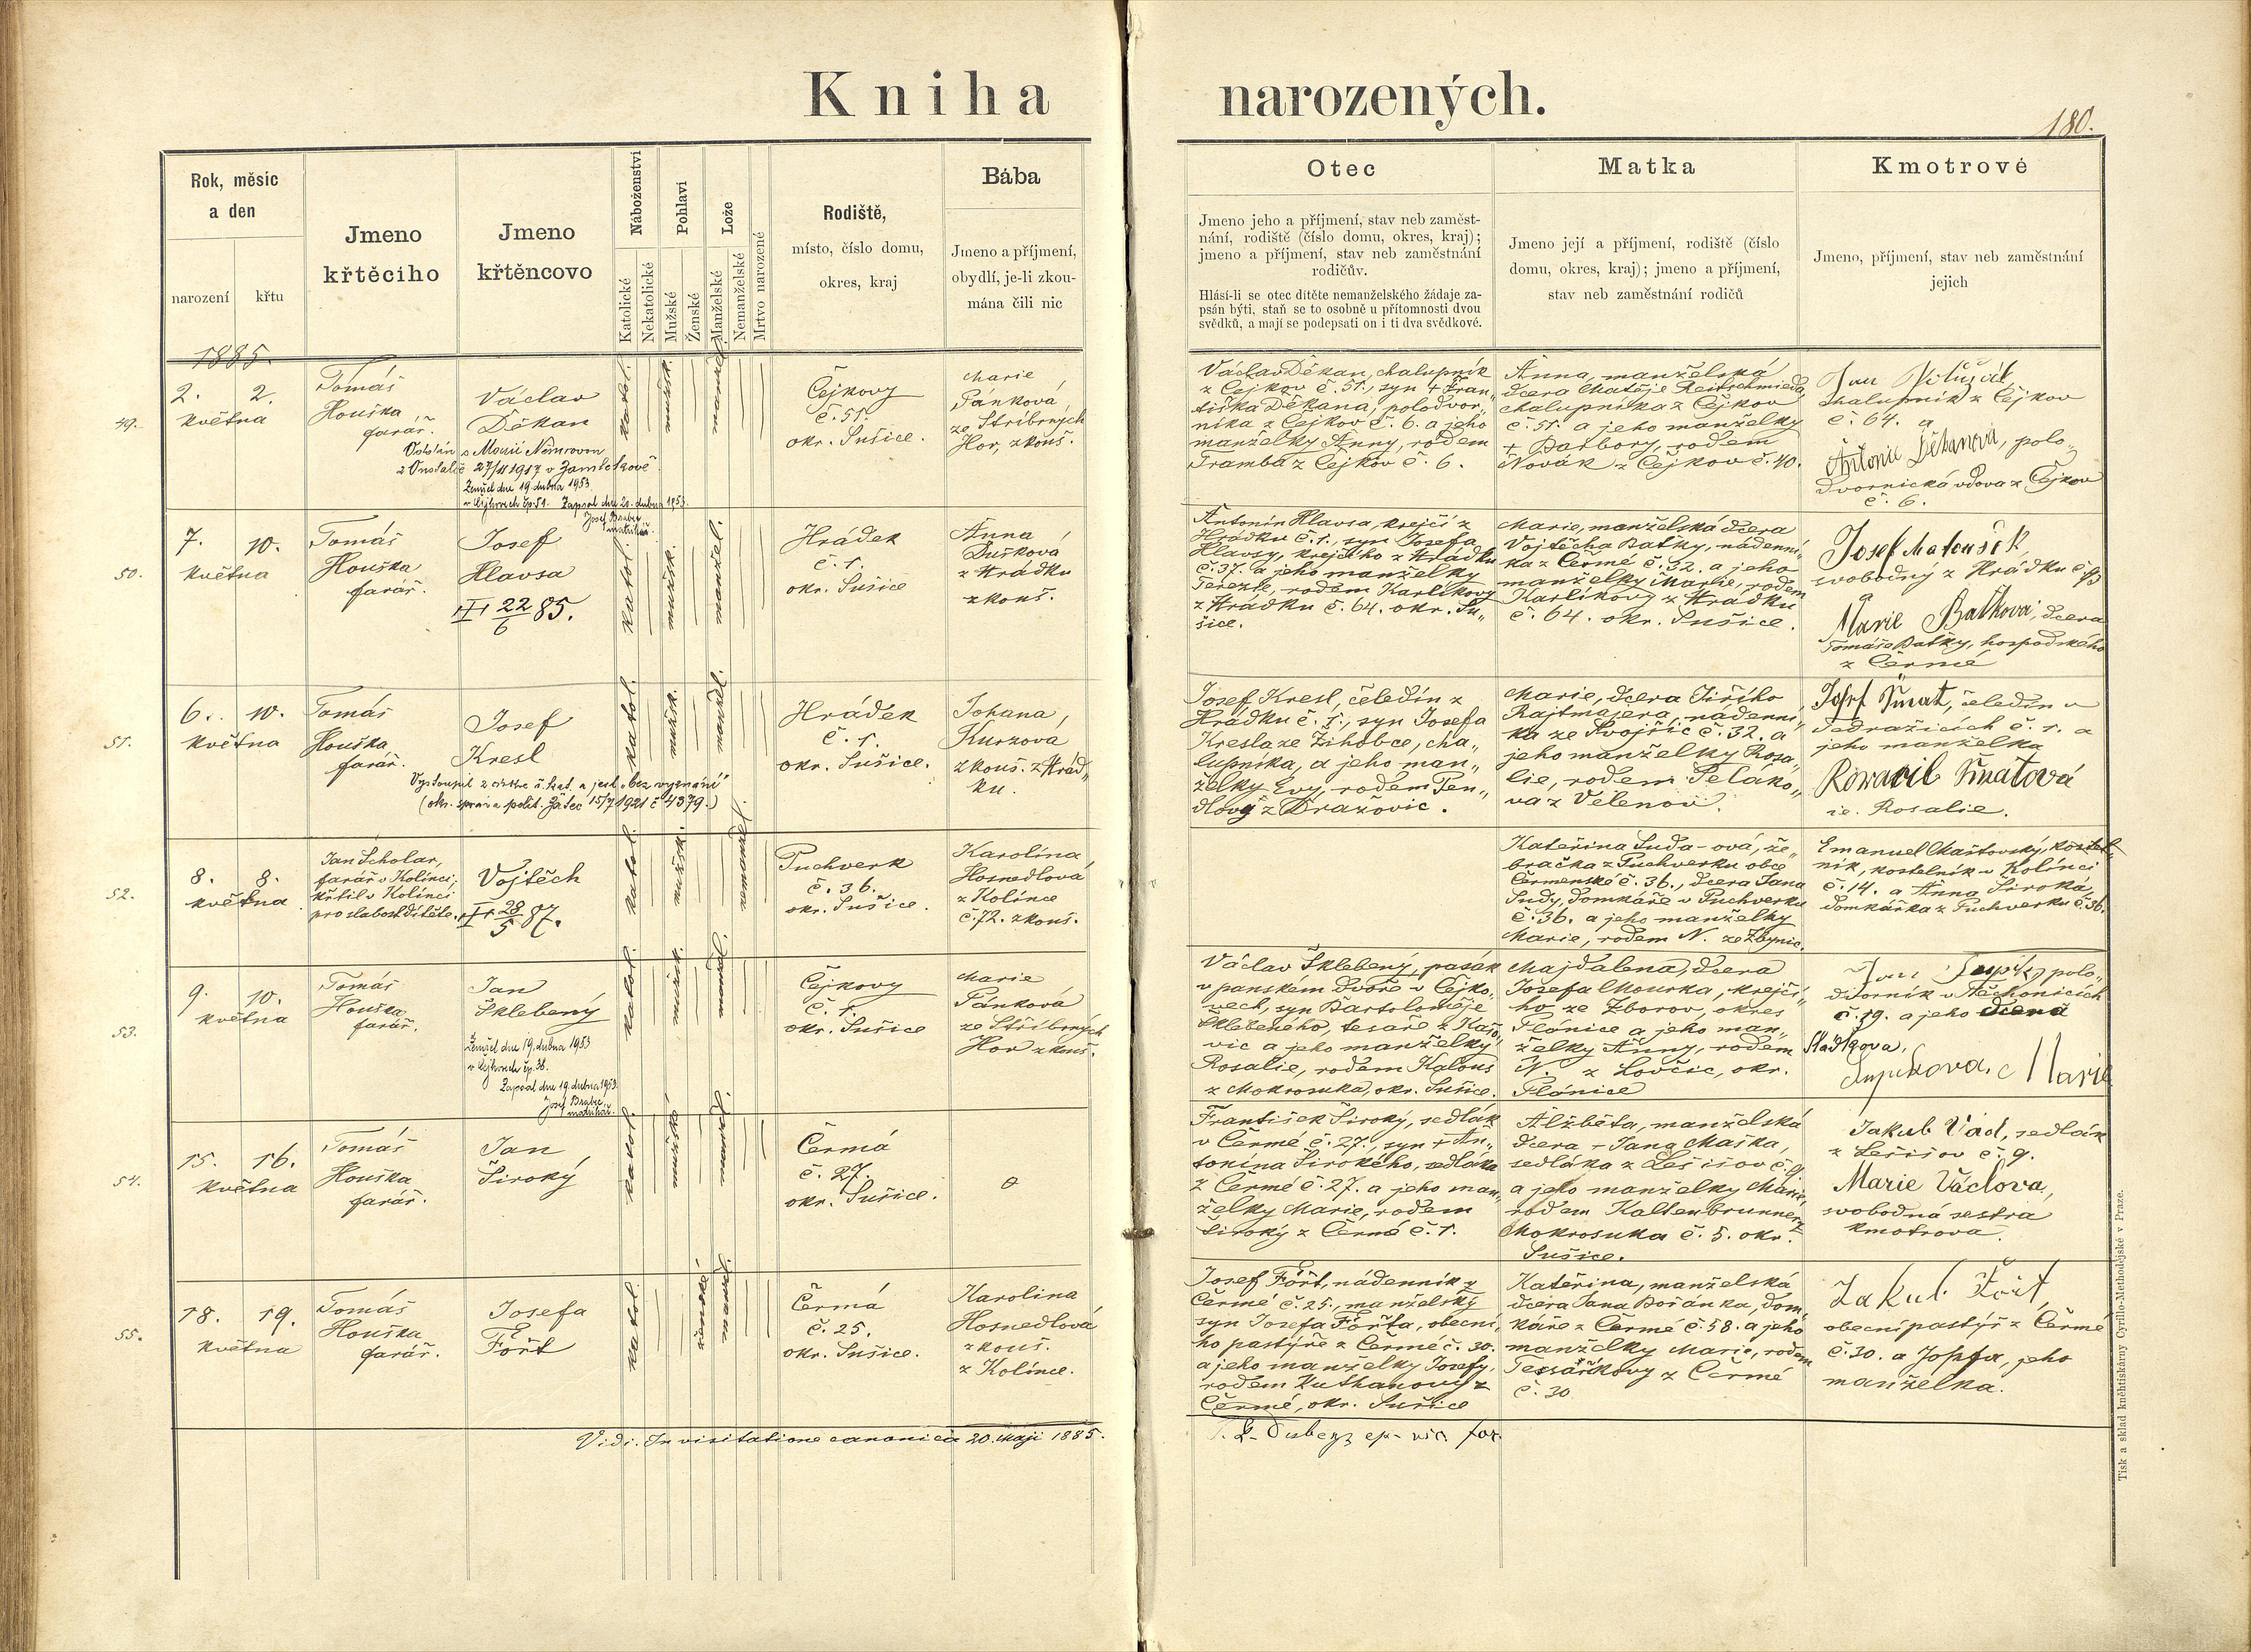 Kniha narozených.
180.
Rok, měsíc
a den
narození
křtu
Jmeno
křtěcího
Jmeno
křtěncovo
Náboženství
Katolické
Nekatolické
Pohlaví
Mužské
Ženské
Lože
Manželské
Nemanželské
Mrtvo narozené
Rodiště,
místo, číslo domu,
okres, kraj
Bába
Jmeno a příjmení,
obydlí, je-li zkou-
mána čili nic
Otec
Jmeno jeho a příjmení, stav neb zaměst-
nání, rodiště (číslo domu, okres, kraj);
jmeno a příjmení, stav neb zaměstnání
rodičův.
Hlásí-li se otec dítěte nemanželského žádaje za-
psán býti, staň se to osobně u přítomnosti dvou
svědků, a mají se podepsati on i ti dva svědkové.
Matka
Jmeno její a příjmení, rodiště (číslo
domu, okres, kraj); jmeno a příjmení,
stav neb zaměstnání rodičů
Kmotrové
Jmeno, příjmení, stav neb zaměstnání
jejich
1885.
49.
2. 2.
května
Tomáš
Houška
farář.
Václav
Děkan
27/11 1917 v
Zemřel dne 19. dubna 1953
v Čejkovech čp. 51. Zapsal dne 20. dubna 1953.
Josef Brabec
matrikář.
katol.
mužsk.
Čejkovy
č. 51.
okr. Sušice.
Marie
Pánková,
ze Stříbrných
Hor, zkouš.
Václav Děkan, chalupník
z Čejkov č. 51., syn + Fran„
tiška Děkana, polodvor„
níka z Čejkov č. 6. a jeho
manželky Anny, rodem
Tramba z Čejkov č. 6.
Anna, manželská
dcera Matěje Reitschmieda,
chalupníka z Čejkov
č. 51. a jeho manželky
+ Barbory, rodem
Novák z Čejkov č. 40.
Jan
chalupník z Čejkov
č. 64. a
Antonie Děkanová, polo„
dvornická vdova z Čejkov
č. 6.
50.
7. 10.
května
Tomáš
Houška
farář.
Josef
Hlavsa
22/6 85.
katol.
mužsk.
manžel.
Hrádek
č. 1.
okr. Sušice
Anna
Dušková
z Hrádku
zkouš.
Antonín Hlavsa, krejčí z
Hrádku č. 1., syn Josefa
Hlavsy, krejčího z Hrádku
č. 37. a jeho manželky
Terezie, rodem Karlíkovy
z Hrádku č. 64. okr. Su„
šice.
Marie, manželská dcera
Vojtěcha Baťky, nádenní„
ka z Čermé č. 32. a jeho
manželky Marie, rodem
Karlíkovy z Hrádku
č. 64. okr. Sušice.
Josef Matoušek,
svobodný z Hrádku č.
a
Marie Baťková, dcera
Tomáše Baťky, hospodského
z Čermé
51.
6. 10.
května
Tomáš
Houška
farář.
Josef
Kresl
Vystoupil z církve ř. kat. a jest „bez vyznání"
(okr. správa polit. Žatec 15/7 1921 č 4379.)
katol.
mužsk.
manžel.
Hrádek
č. 1.
okr. Sušice.
Johana
Kurzova
zkouš. z Hrád„
ku.
Josef Kresl, čeledín z
Hrádku č. 1., syn Josefa
Kresla ze Žihobce, cha„
lupníka, a jeho man„
želky Evy, rodem Ten„
dlový z Dražovic.
Marie, dcera Jiřího
Rajtmajera, nádenní„
ka ze Svojšic č. 32. a
jeho manželky Rosa„
lie, rodem Peláko„
va z Velenov.
Josef Šmat, čeledín v
Tedražicích č. 1. a
jeho manželka
Šmatová
ie. Rosalie.
52.
8. 8.
května
Jan Scholar,
farář v Kolínci,
křtil v Kolínci
pro slabost dítěte.
Vojtěch
28/5 87.
katol.
mužsk.
nemanžel.
Puchverk
č. 36.
okr. Sušice.
Karolína
Hosnedlová
z Kolínce
č. 72. zkouš.
Kateřina Suda-ová, že„
bračka z Puchverku obce
Čermenské č. 36., dcera Jana
Sudy, domkáře v Puchverku
č. 36. a jeho manželky
Marie, rodem N. ze Zbynic.
Emanuel Maštovský, kostel„
ník, kostelník v Kolínci
č. 14. a Anna Široká,
domkářka z Puchverku č. 36.
53.
9. 10.
května
Tomáš
Houška
farář.
Jan
Šklebený
Zemřel dne 19. dubna 1953
v Čejkovech čp. 38.
Zapsal dne 19. dubna 1953.
Josef Brabec
matrikář.
katol.
mužsk.
Čejkovy
č. 1.
okr. Sušice
Marie
Pánková
ze Stříbrných
Hor zkouš.
Václav Šklebený, pasák
v panském dvoře v Čejko„
vech, syn Bartoloměje
Šklebeného, tesaře z Kašo„
vic a jeho manželky
Rosalie, rodem Kalous
z Mokrosuka, okr. Sušice.
Majdalena, dcera
Josefa Mourka, krejčí„
ho, ze Zborov, okres
Plánice a jeho man„
želky Anny, rodem
N. z Lovčic, okr.
Plánice
Jan polo„
dvorník v Těchonicích
č. 19. a jeho žena
Marie
54.
15. 16.
května
Tomáš
Houška
farář.
Jan
Široký
katol.
mužské
Čermá
č. 27.
okr. Sušice.
František Široký, sedlák
v Čermé č. 27., syn + An„
tonína Širokého, sedláka
z Čermé č. 27. a jeho man„
želky Marie, rodem
Široký z Čermé č. 1.
Alžběta, manželská
dcera + Jana Maška,
sedláka z Lešišov č. 9
a jeho manželky Marie,
rodem Kaltenbrunner z
Mokrosuka č. 5. okr.
Sušice.
Jakub Václ, sedlák
z Lešišov č. 9.
Marie Václova,
svobodná sestra
kmotrova.
55.
18. 19.
května
Tomáš
Houška
farář.
Josefa
Fořt
katol.
ženské
Čermá
č. 25.
okr. Sušice.
Karolina
Hosnedlová
zkouš.
z Kolínce.
Josef Fořt, nádenník z
Čermé č. 25., manželský
syn Josefa Fořta, obecní„
ho pastýře z Čermé č. 30.
a jeho manželky Josefy,
rodem Kuthanovy z
Čermé, okr. Sušice
Kateřina, manželská
dcera Jana Bořánka, dom„
káře z Čermé č. 58. a jeho
manželky Marie, rodem
Tesaříkovy z Čermé
č. 30
Jakub Fořt,
obecní pastýř z Čermé
č. 30. a Josefa, jeho
manželka.
Vidi. In visitatione canonica 20. Maji 1885.
Tisk a sklad kněhtiskárny Cyrillo-Methodějské v Praze.